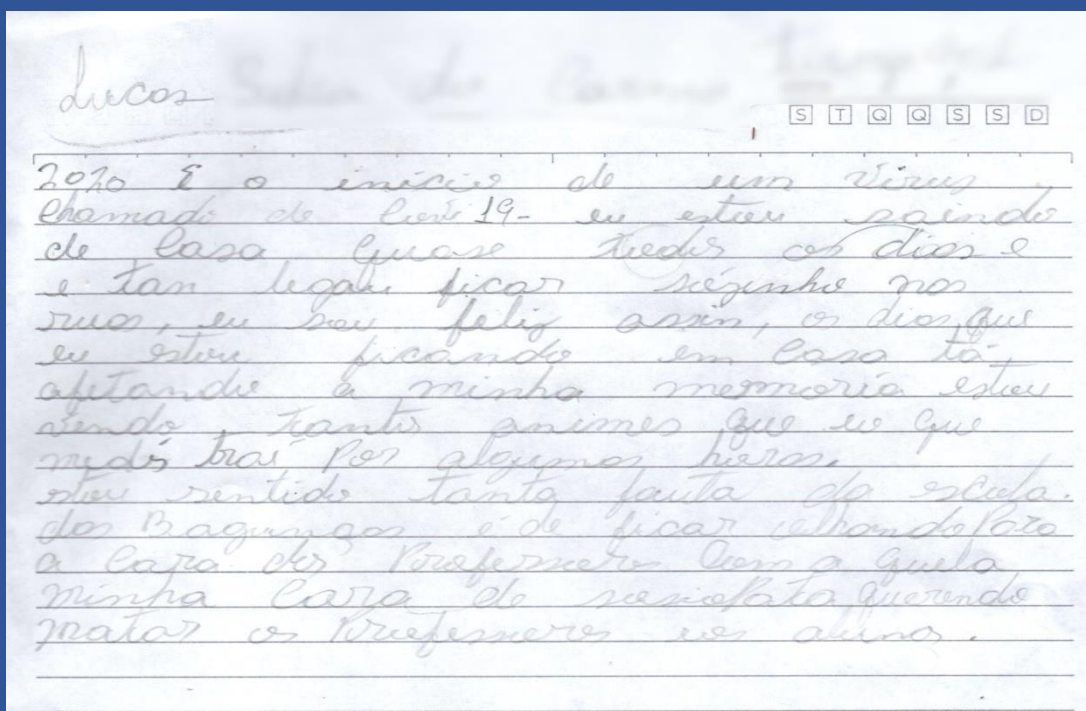 Lucas
S T Q Q S S D
2020 E o inicio de um Virus,
chamado de Covi 19- eu estou saindo
de Casa Quase todos os dias e
e tan legau ficar sózinho nas
ruas, eu sou feliz assin, os dias, que
eu estou ficando em Casa tá,
afetando a minha memoria estou
vendo tantos animes que eo que
medis trai Por algumas horas.
estou sentido tanta fauta da escola.
dos Bagunças e de ficar olhando Para
a Cara dos Professores Com a quela
minha Cara de sosioPata querendo
matar os Professores eos alunos.